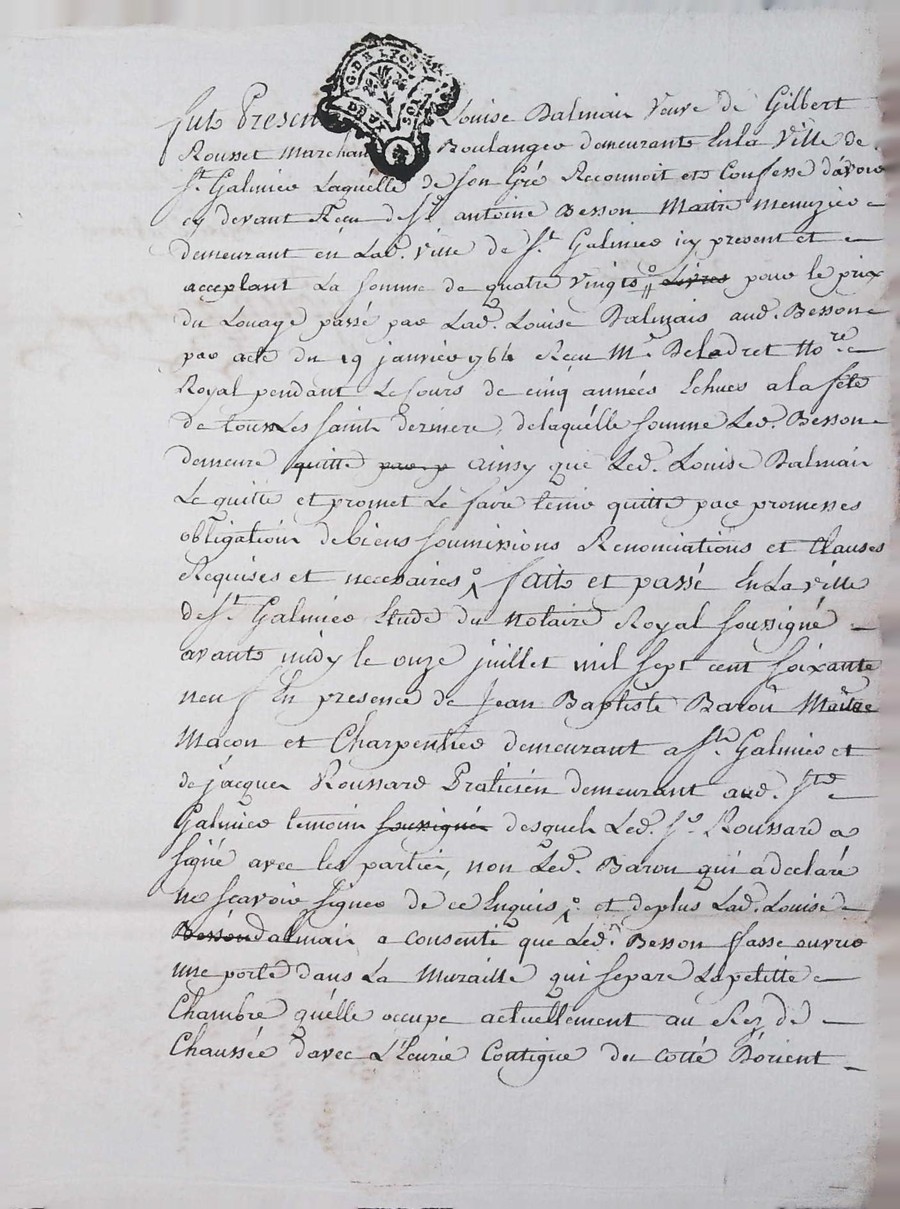 G. DE LYON
Fute Presente Louise Dalmain Veuve de Gilbert
Rousset Marchand Boulanger demeurante En la Ville de
St. Galmier Laquelle de son Gré Reconnoit et Confesse d'avoir
cy devant Receu de Sr. antoine Besson Maitre menuzier
demeurant en Lad. Ville de St. Galmier icy present et
acceptant La somme de quatre vingts Livres pour le prix
du Louage passé par Lad. Louise Dalmais aud. Besson
par acte du 19 janvier 1764 Receu Me. Deladret Nore.
Royal pendant Le Cours de cinq années Echues a la fete
de tous Les saints derniere, de laquelle somme Led. Besson
demeure quitte par y ainsy que Led. Louise Dalmain
Le quitte et promet Le faire tenir quitte par promesses
obligations de biens soumissions Renonciations et Clauses
Requises et necessaires faite et passé En La ville
de St. Galmier Etude du notaire Royal soussigné
avant midy le onze juillet mil sept cent soixante
neuf En presence de Jean Baptiste Barou Maitre
Macon et Charpentier demeurant a St. Galmier et
de jacques Roussard Praticien demeurant aud. St.
Galmier temoins soussignés desquels Led. Sr. Roussard a
signé avec les parties, non Led. Barou qui a declaré
ne scavoir signer de ce Enquis et de plus Lad. Louise
Besson dalmain a consenti que Led. Besson fasse ouvrir
une porte dans La Muraille qui separe La petitte
Chambre qu'elle occupe actuellement au Rez de
Chaussée d'avec L'Ecurie Contigue du cotté D'orient